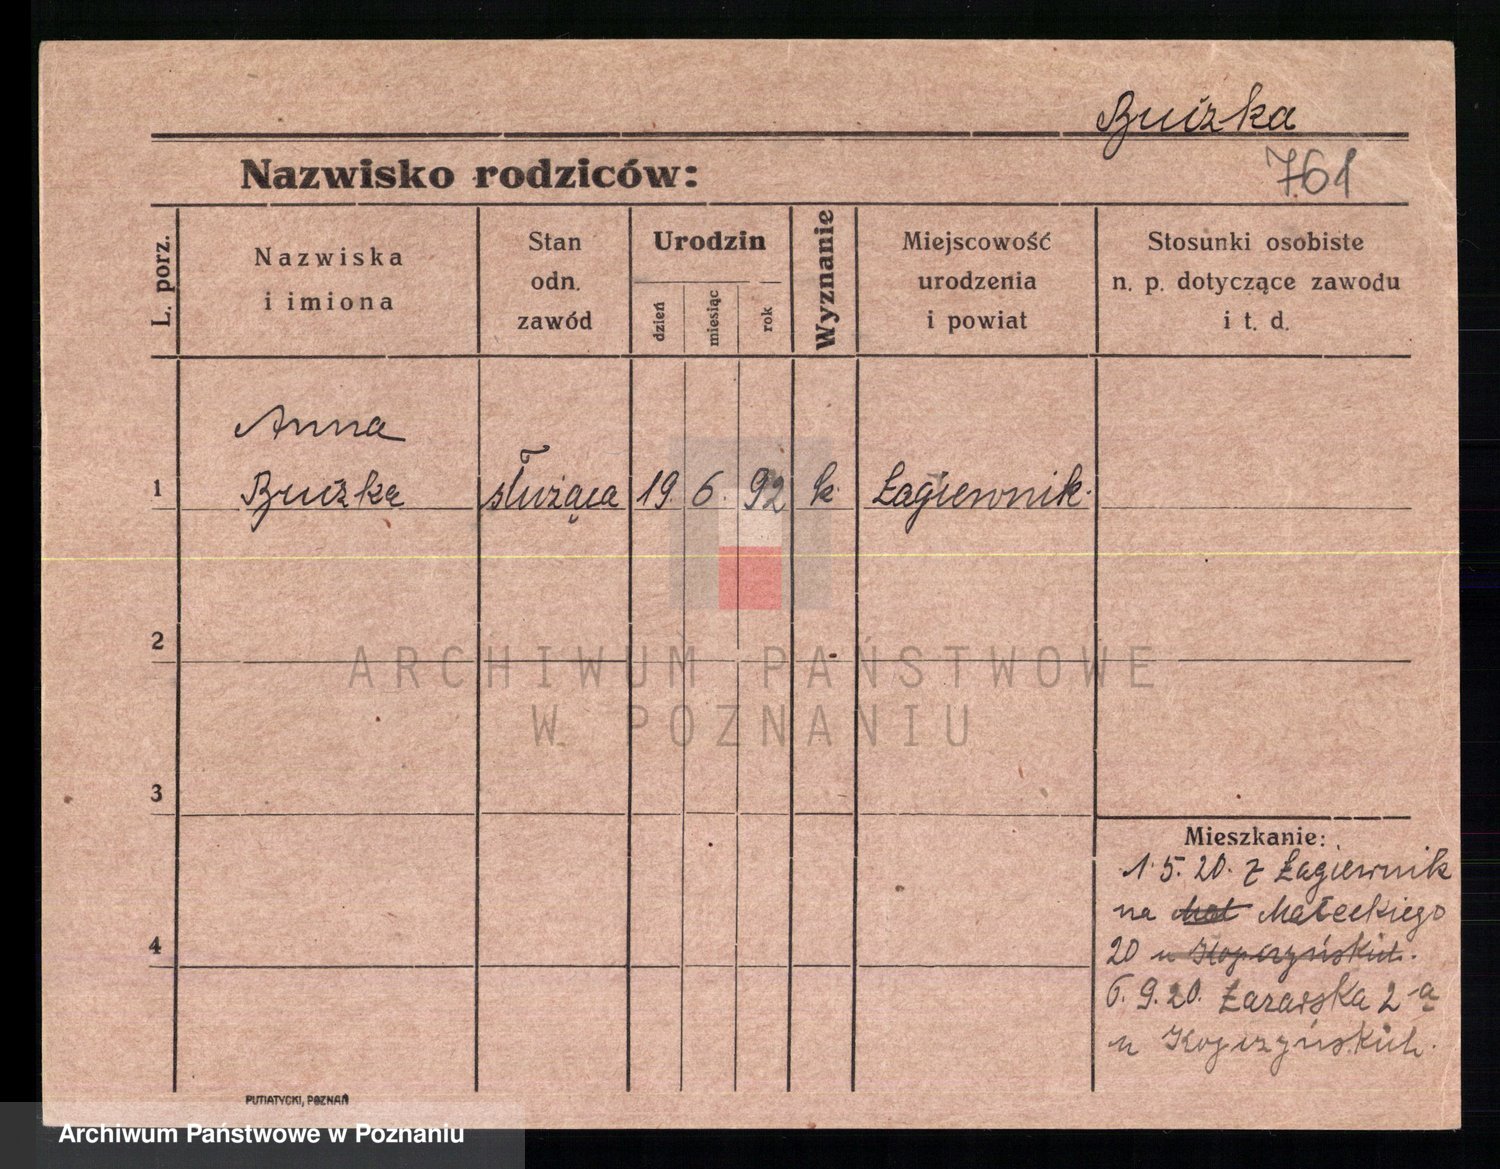 Buiżka
Nazwisko rodziców:
761
L. porz.
Nazwiska
i imiona
Stan
odn.
zawód
Urodzin
dzień
miesiąc
rok
Wyznanie
Miejscowość
urodzenia
i powiat
Stosunki osobiste
n. p. dotyczące zawodu
i t. d.
Anna
1 Buiżka służąca 19. 6. 92 k. Łagiewnik.
2
ARCHIWUM PAŃSTWOWE
W POZNANIU
3
Mieszkanie:
1. 5. 20. z Łagiewnik
na Małeckiego
4
20 u Kopczyńskich.
6. 9. 20. Łazarska 2a
u Kopczyńskich.
PUTIATYCKI, POZNAŃ
Archiwum Państwowe w Poznaniu